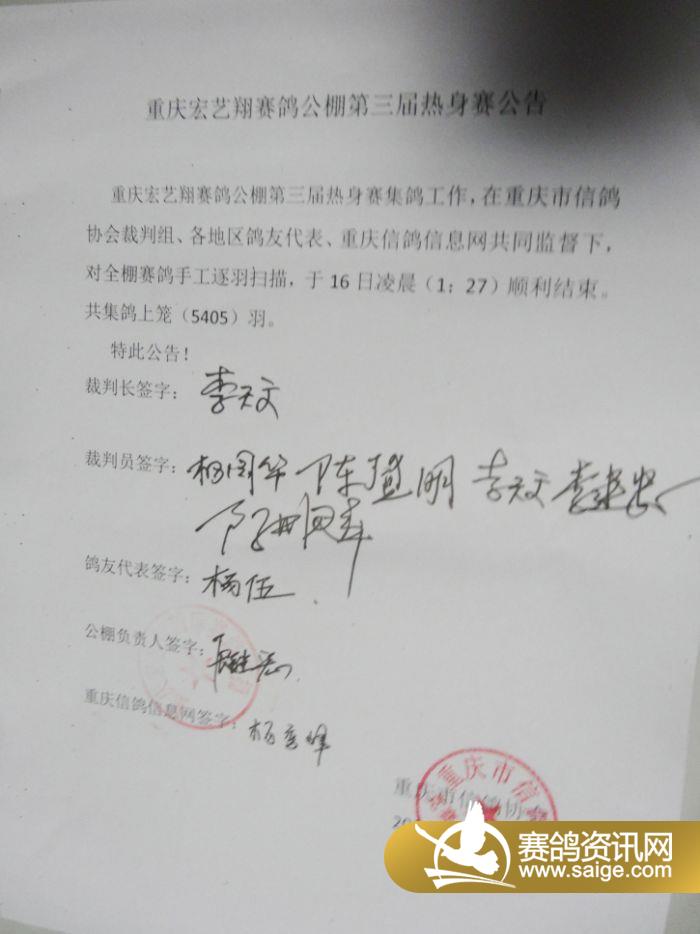 重庆宏艺翔赛鸽公棚第三届热身赛公告
重庆宏艺翔赛鸽公棚第三届热身赛集鸽工作，在重庆市信鸽
协会裁判组、各地区鸽友代表、重庆信鸽信息网共同监督下，
对全棚赛鸽手工逐羽扫描，于 16 日凌晨（1：27）顺利结束。
共集鸽上笼（5405）羽。
特此公告！
裁判长签字：李天文
裁判员签字：杨国华 李天文
鸽友代表签字：杨伍
公棚负责人签字：
重庆信鸽信息网签字：
重庆市信鸽协会
20
重庆市信鸽
赛鸽资讯网
www.saige.com